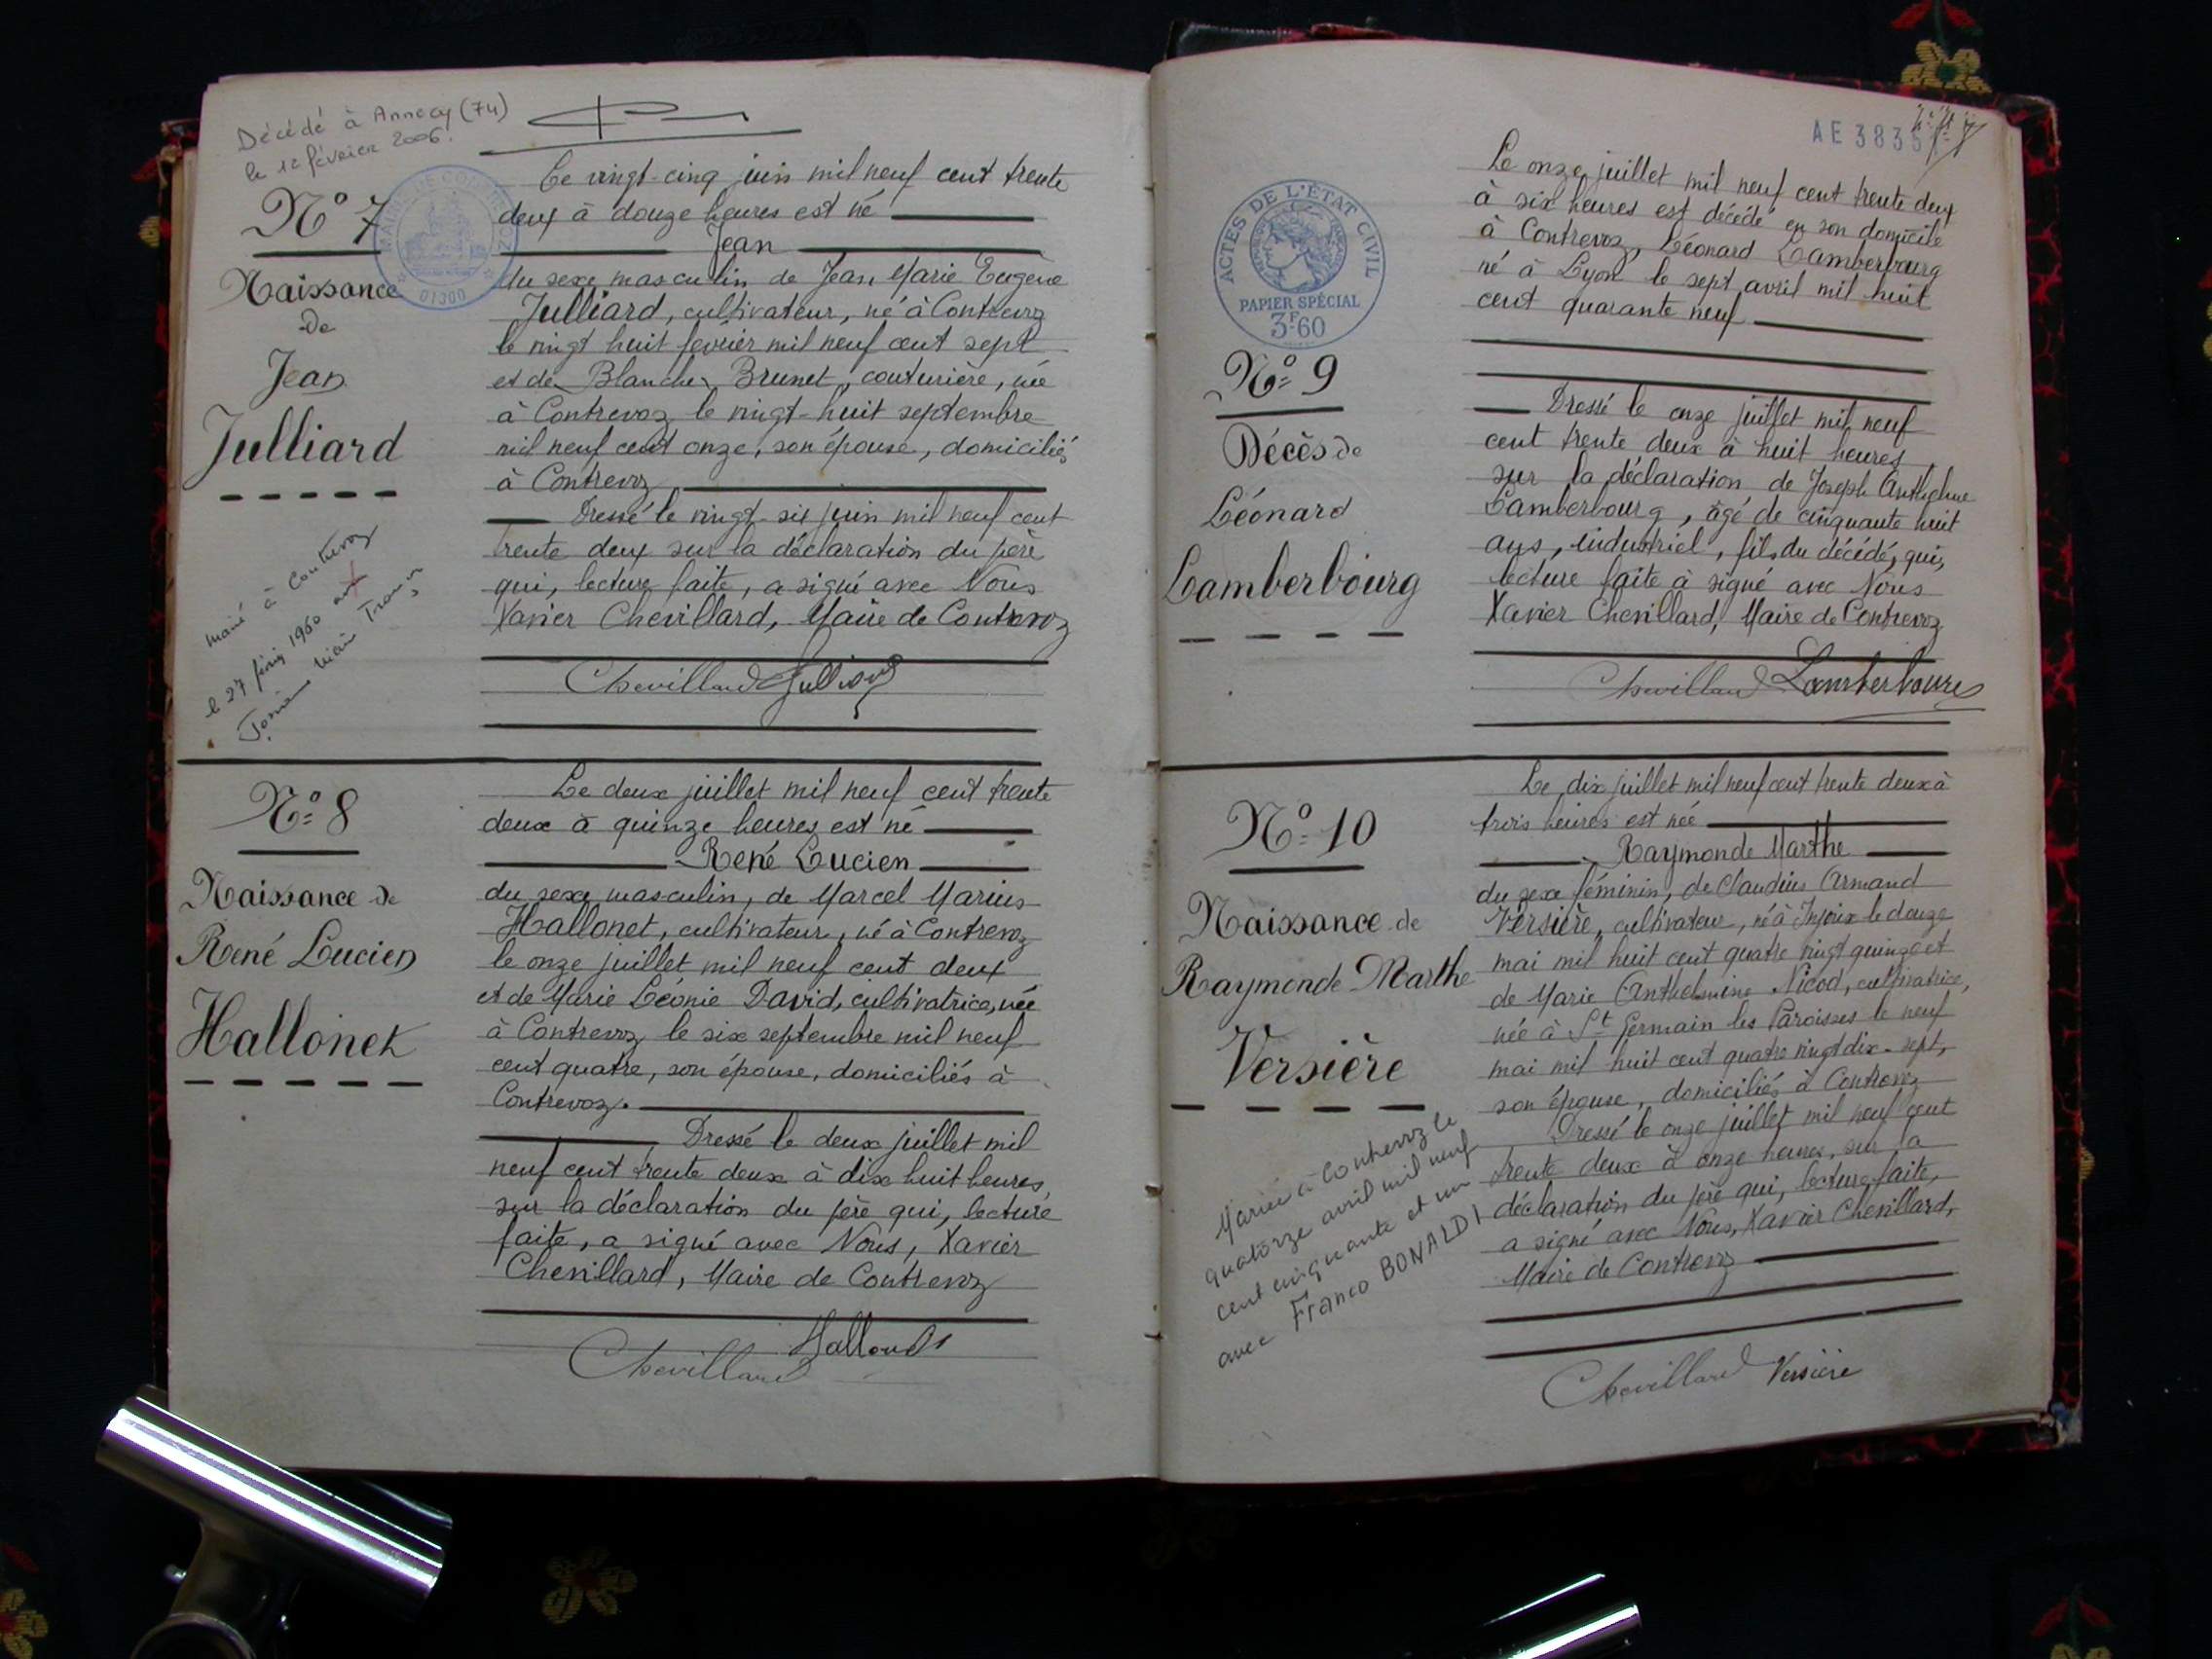 Décédé à Annecy (74)
le 12 février 2006.
N° 7
Naissance
de
Jean
Julliard
marié à Contrevoz
le 27 1960 avec
MAIRIE DE CONTREVOZ
01300
Le vingt-cinq juin mil neuf cent trente
deux à douze heures est né
Jean
du sexe masculin de Jean Marie Eugène
Julliard, cultivateur, né à Contrevoz
le vingt huit février mil neuf cent sept
et de Blanche Brunet, couturière, née
à Contrevoz le vingt-huit septembre
mil neuf cent onze, son épouse, domiciliés
à Contrevoz
Dressé le vingt-six juin mil neuf cent
trente deux sur la déclaration du père
qui, lecture faite, a signé avec Nous
Xavier Chevillard, Maire de Contrevoz
Chevillard Julliard
N° 8
Naissance de
René Lucien
Hallonet
Le deux juillet mil neuf cent trente
deux à quinze heures est né
René Lucien
du sexe masculin, de Marcel Marius
Hallonet, cultivateur, né à Contrevoz
le onze juillet mil neuf cent deux
et de Marie Léonie David, cultivatrice, née
à Contrevoz le six septembre mil neuf
cent quatre, son épouse, domiciliés à
Contrevoz.
Dressé le deux juillet mil
neuf cent trente deux à dix huit heures,
sur la déclaration du père qui, lecture
faite, a signé avec Nous, Xavier
Chevillard, Maire de Contrevoz
Hallonet
Chevillard
AE 3835
ACTES DE L'ÉTAT CIVIL
PAPIER SPÉCIAL
3F.60
N° 9
Décès de
Léonard
Lamberbourg
Le onze juillet mil neuf cent trente deux
à six heures est décédé en son domicile
à Contrevoz, Léonard Lamberbourg
né à Lyon le sept avril mil huit
cent quarante neuf
Dressé le onze juillet mil neuf
cent trente deux à huit heures
sur la déclaration de Joseph Anthelme
Lamberbourg, âgé de cinquante huit
ans, industriel, fils du décédé, qui,
lecture faite à signé avec Nous
Xavier Chevillard, Maire de Contrevoz
Chevillard Lamberbourg
N° 10
Naissance de
Raymonde Marthe
Versière
Mariée à Contrevoz le
quatorze avril mil neuf
cent cinquante et un
avec Franco BONALDI
Le dix juillet mil neuf cent trente deux à
trois heures est née
Raymonde Marthe
du sexe féminin, de Claudius Armand
Versière, cultivateur, né à Injoux le douze
mai mil huit cent quatre vingt quinze et
de Marie Anthelmine Nicod, cultivatrice,
née à St Germain les Paroisses le neuf
mai mil huit cent quatre vingt dix-sept,
son épouse, domiciliés à Contrevoz
Dressé le onze juillet mil neuf cent
trente deux à onze heures, sur la
déclaration du père qui, lecture faite,
a signé avec Nous, Xavier Chevillard,
Maire de Contrevoz
Chevillard Versière